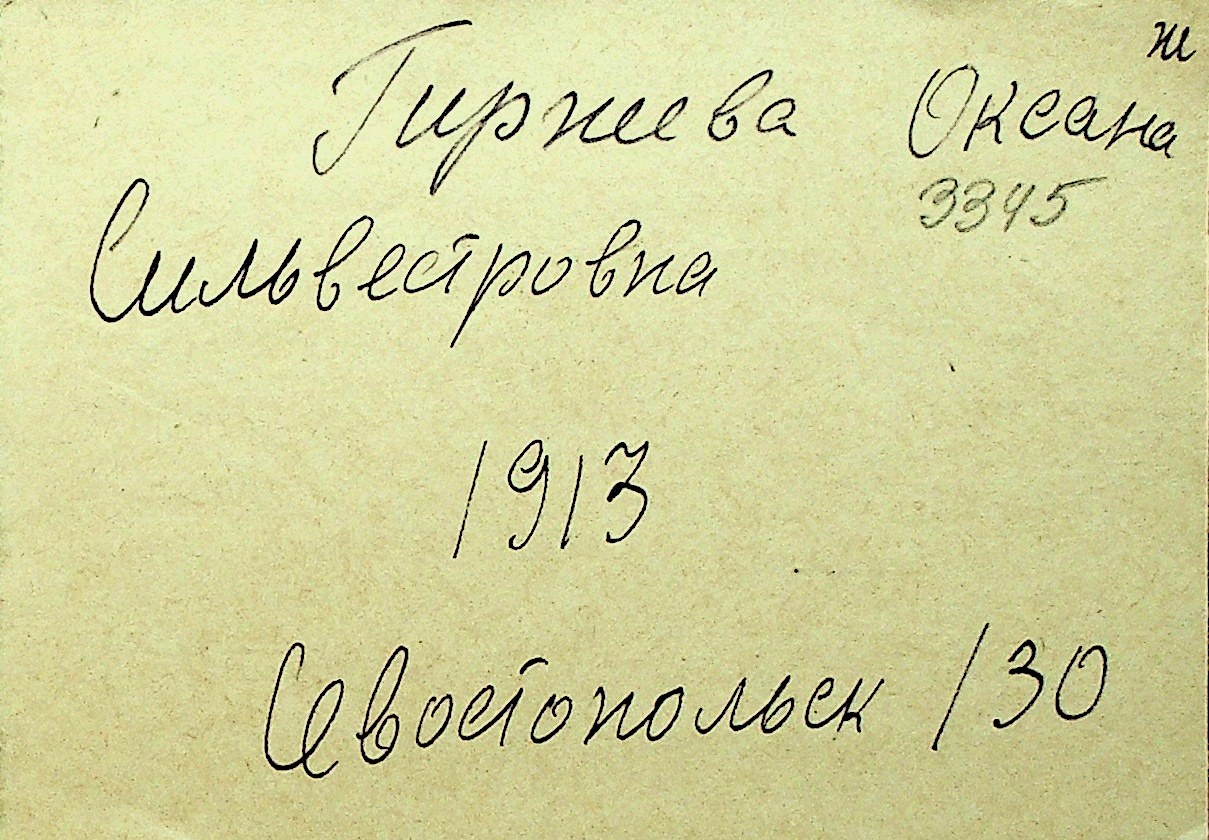 ж
Гиржева Оксана
3345
Сильвестровна
1913
Севостопольск 130